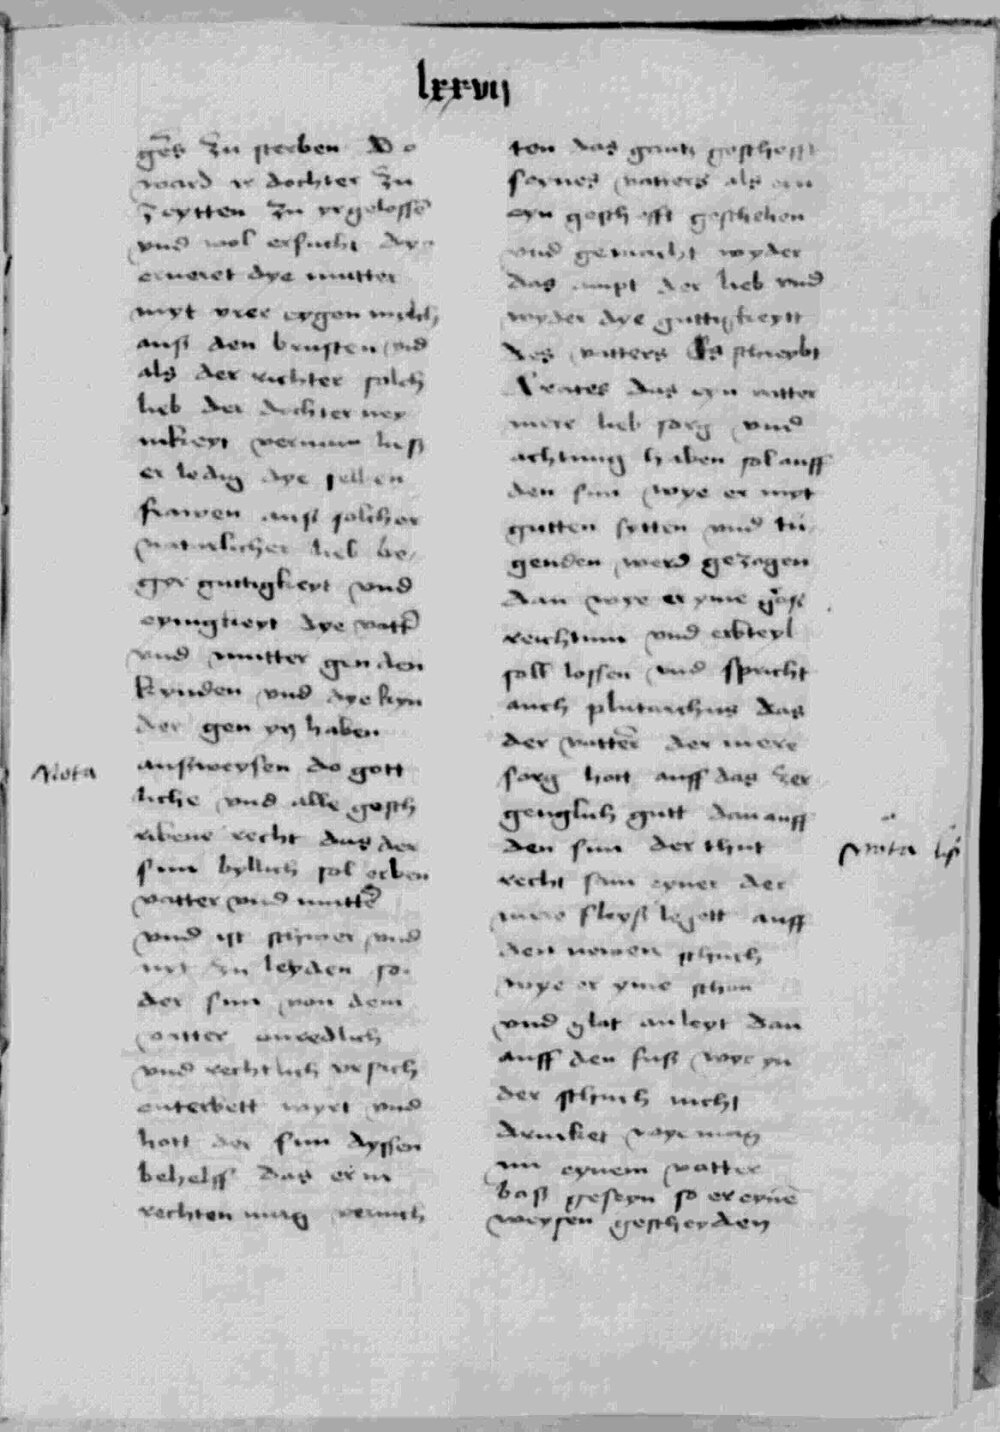 lxxvij
gers zu sterben Do
ward ir dochter zu
zeytten zu yr gelossen
vnd wol ersucht dye
erneret dye mutter
myt yrer eygen milch
auß den brusten vnd
als der richter solch
lieb der dochter
vernam ließ
er ledig dye selben
frawen auß solcher
naturlicher lieb be
ger guttigkeyt vnd
eynigkeyt dye vatter
vnd mutter gen den
kynden vnd dye kyn
der gen yn haben
Nota
außweysen do gott
liche vnd alle gesch
ribene recht das der
sun byllich sol erben
vatter vnd mutter
vnd ist schwer vnd
nyt zu leyden so
der sun von dem
vatter onredlich
vnd rechtlich vrsach
enterbett wyrt vnd
hott der sun dyssen
behelff das er in
rechten mag vernich
ten das gantz geschefft
seynes vatters als
eyn geschefft geschehen
vnd gemacht wyder
das ampt der lieb vnd
wyder dye guttigkeytt
des vatters Es schreybt
Crates das eyn vatter
mere lieb sorg vnd
achtung haben sol auff
den sun wye er myt
gutten sytten vnd tu
genden werd gezogen
dan wye er yme groß
reichtum vnd erbteyl
soll lossen vnd spricht
auch plutarchus das
der vatter der mere
sorg hott auff das zer
genglich gutt dan auff
den sun der thut
Nota
recht sam eyner der
mere fleyß legett auff
den newen schuch
wye er yme schon
vnd glat anleyt dan
auff den fuß wye yn
der schuch nicht
drucket wye mag
nu eynem vatter
baß geseyn so er eynen
weysen gescheyden